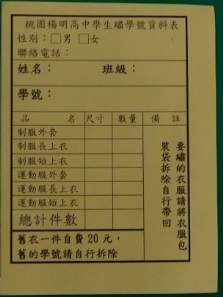 桃園楊明高中學生繡學號資料表
性別：□男 □女
聯絡電話：
姓名： 班級：
學號：
品 名 尺寸 數量 備 註
制服外套
制服長上衣
制服短上衣
運動服外套
運動服長上衣
運動服短上衣
總計件數
要繡的衣服請將衣服包
裝袋拆除自行帶回
舊衣一件自費20元，
舊的學號請自行拆除